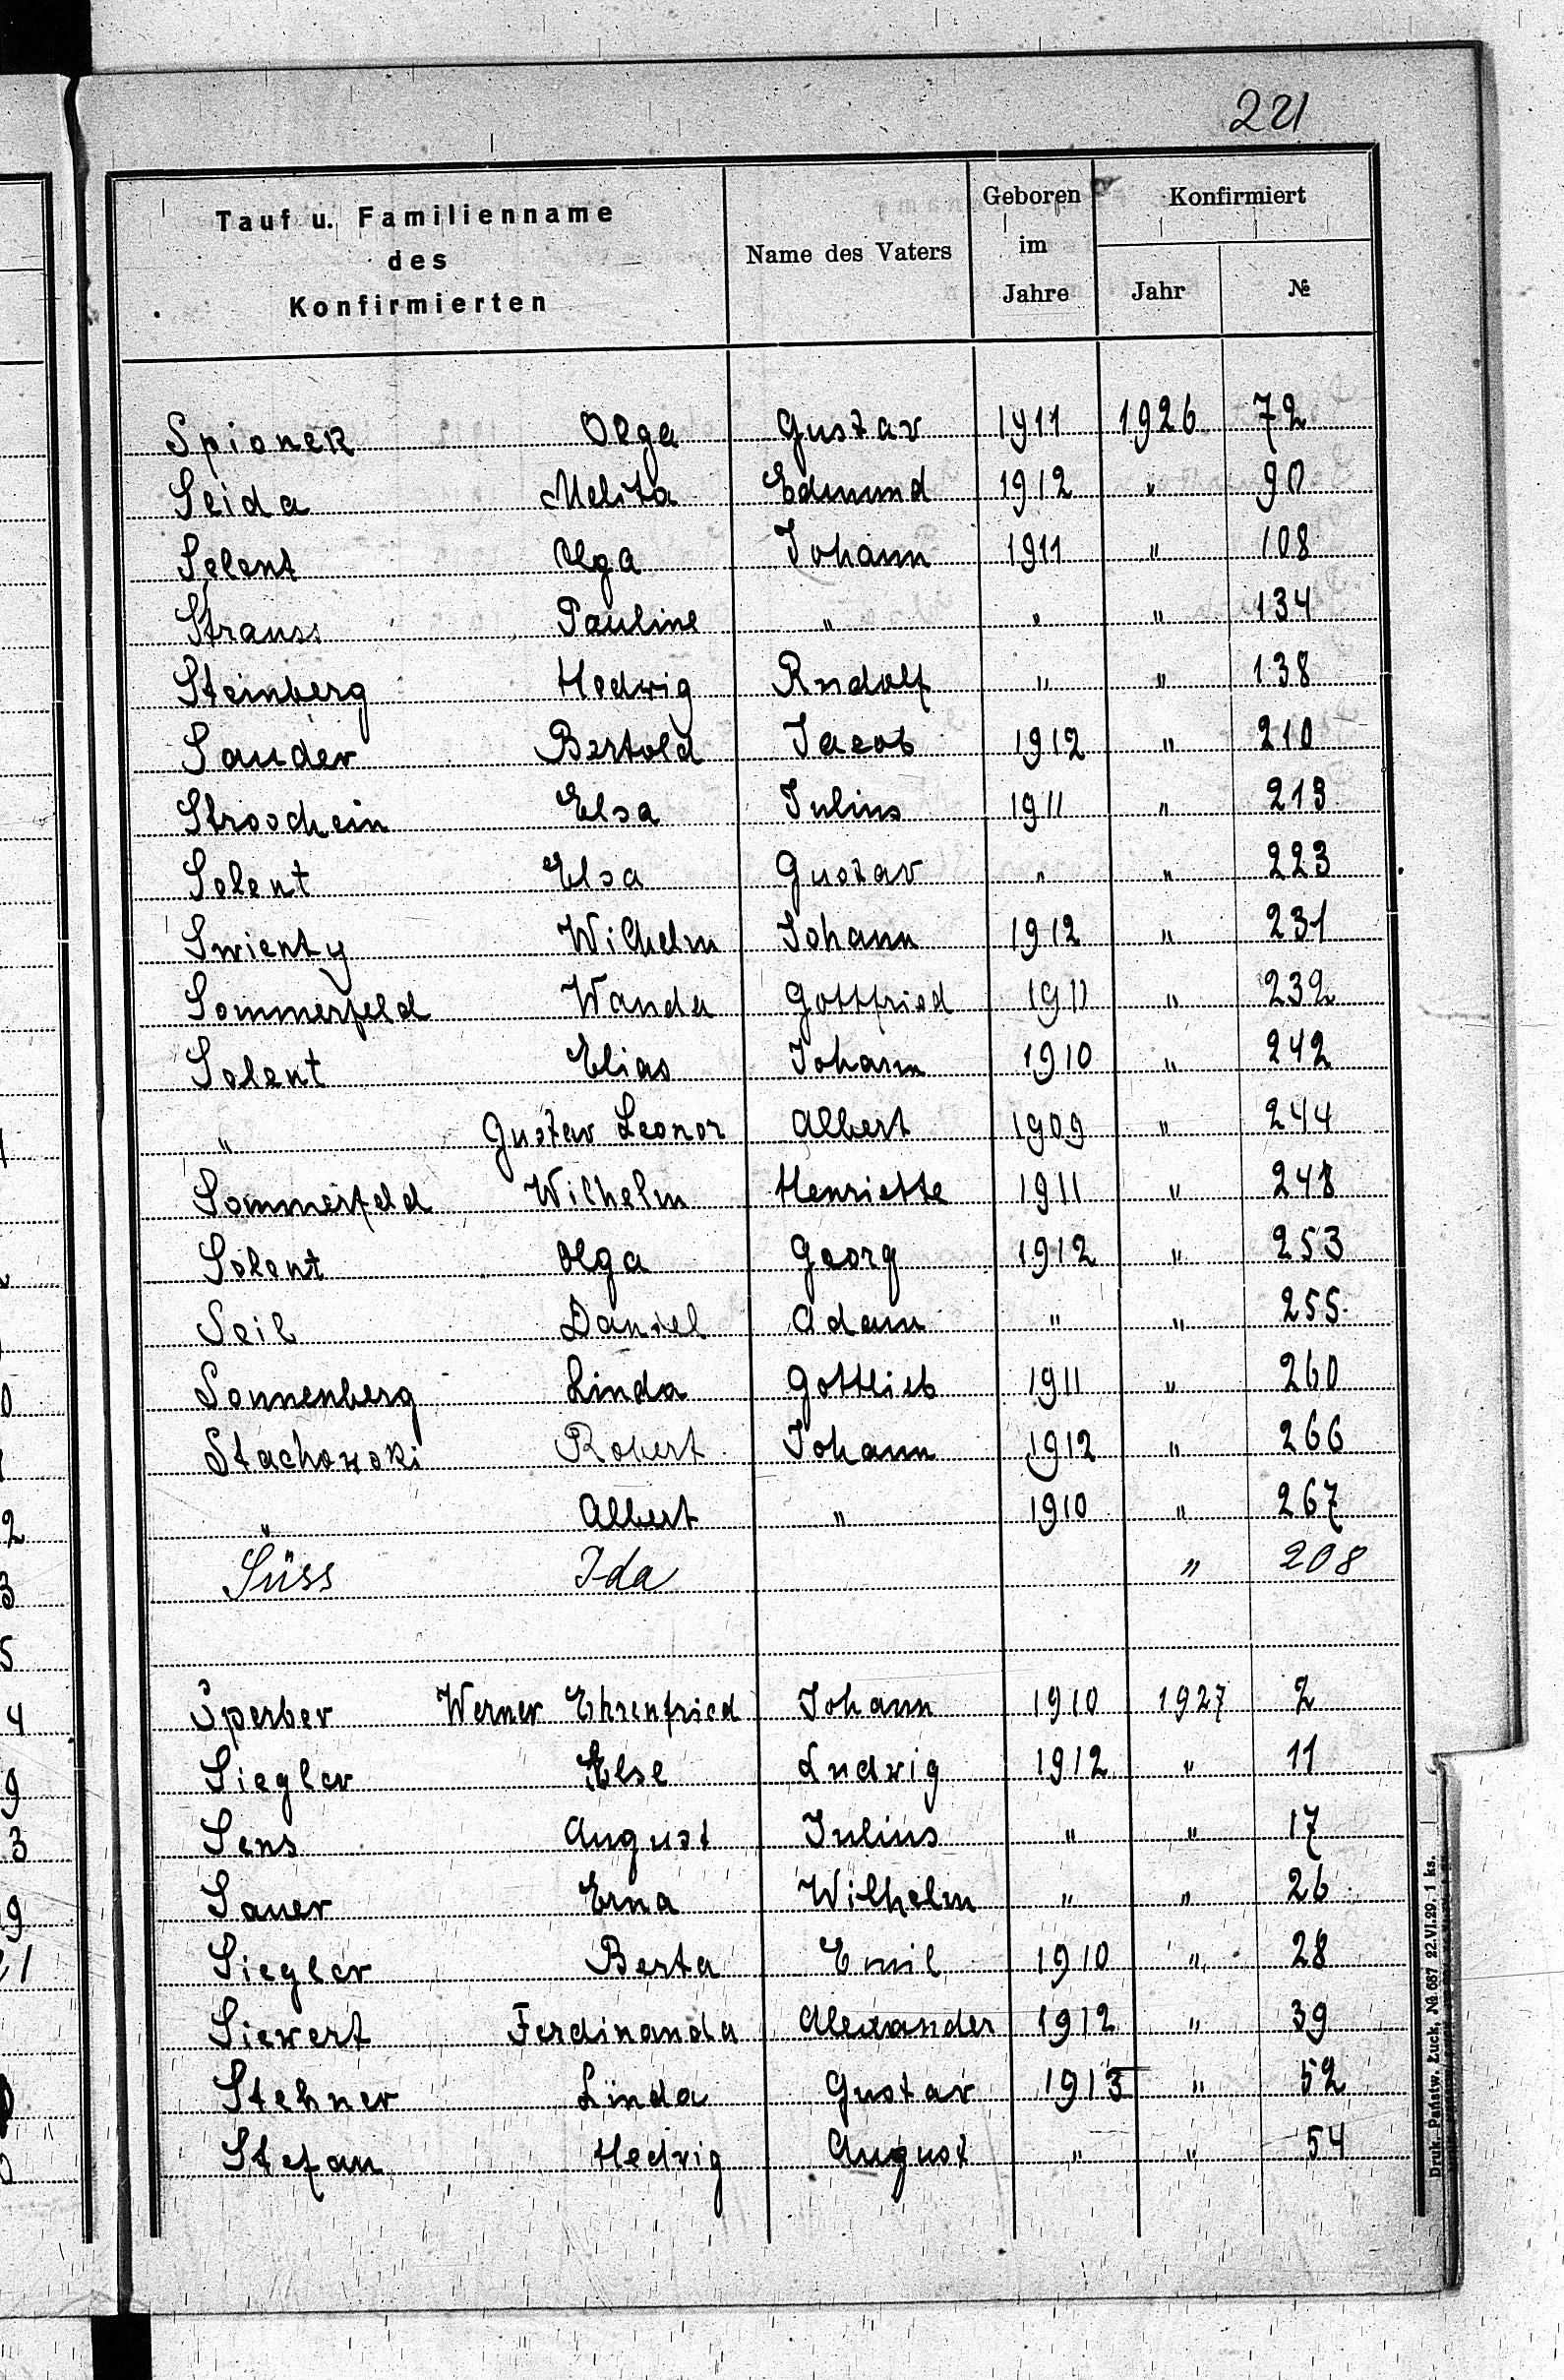 221
Tauf u. Familienname des Konfirmierten | Name des Vaters | Geboren im Jahre | Konfirmiert Jahr | №
Spionek Olga Gustav 1911 1926 72
Seida Melita Edmund 1912 " 90
Selent Olga Johann 1911 " 108
Strauss Pauline " " " 134
Steinberg Hedwig Rudolf " " 138
Sauder Bertold Jacob 1912 " 210
Stroschein Elsa Julius 1911 " 213
Selent Elsa Gustav " " 223
Swienty Wilhelm Johann 1912 " 231
Sommerfeld Wanda Gottfried 1911 " 239
Selent Elias Johann 1910 " 242
" Gustav Leonor Albert 1909 " 244
Sommerfeld Wilhelm Henriette 1911 " 248
Selent Olga Georg 1912 " 253
Seil Daniel Adam " " 255
Sonnenberg Linda Gottlieb 1911 " 260
Stachowski Robert Johann 1912 " 266
" Albert " 1910 " 267
Süss Ida " 208
Sperber Werner Ehrenfried Johann 1910 1927 2
Siegler Else Ludwig 1912 " 11
Sens August Julius " " 17
Sauer Erna Wilhelm " " 26
Siegler Berta Emil 1910 " 28
Siewert Ferdinanda Alexander 1912 " 39
Stehner Linda Gustav 1913 " 52
Stefan Hedwig August " " 54
Druk. Państw. Łuck, № 687 22.VI.29. 1 ks.